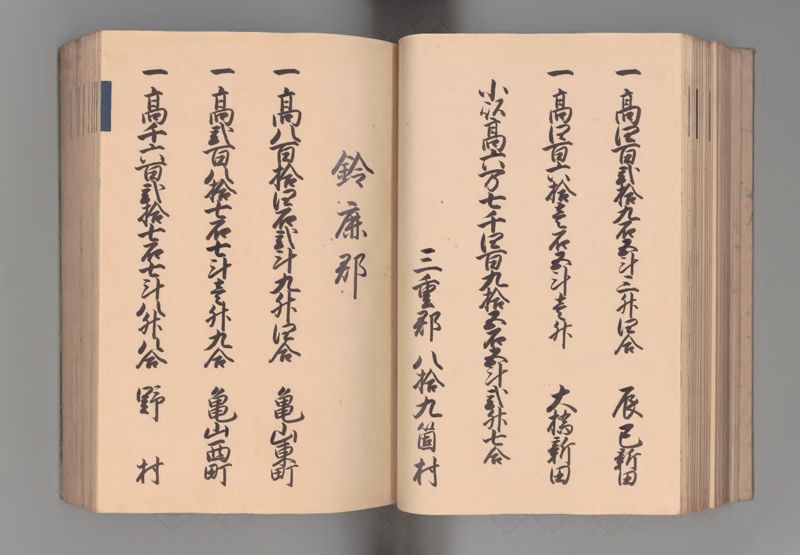 一 高四百弐拾九石五斗三升四合 辰巳新田
一 高四百六拾壱石五斗壱升 大橋新田
小以高六万七千四百九拾五石五斗弐升七合
三重郡 八拾九箇村
鈴鹿郡
一 高八百拾四石弐斗九升四合 亀山東町
一 高弐百八拾七石七斗壱升九合 亀山西町
一 高千六百弐拾七石七斗八升八合 野村